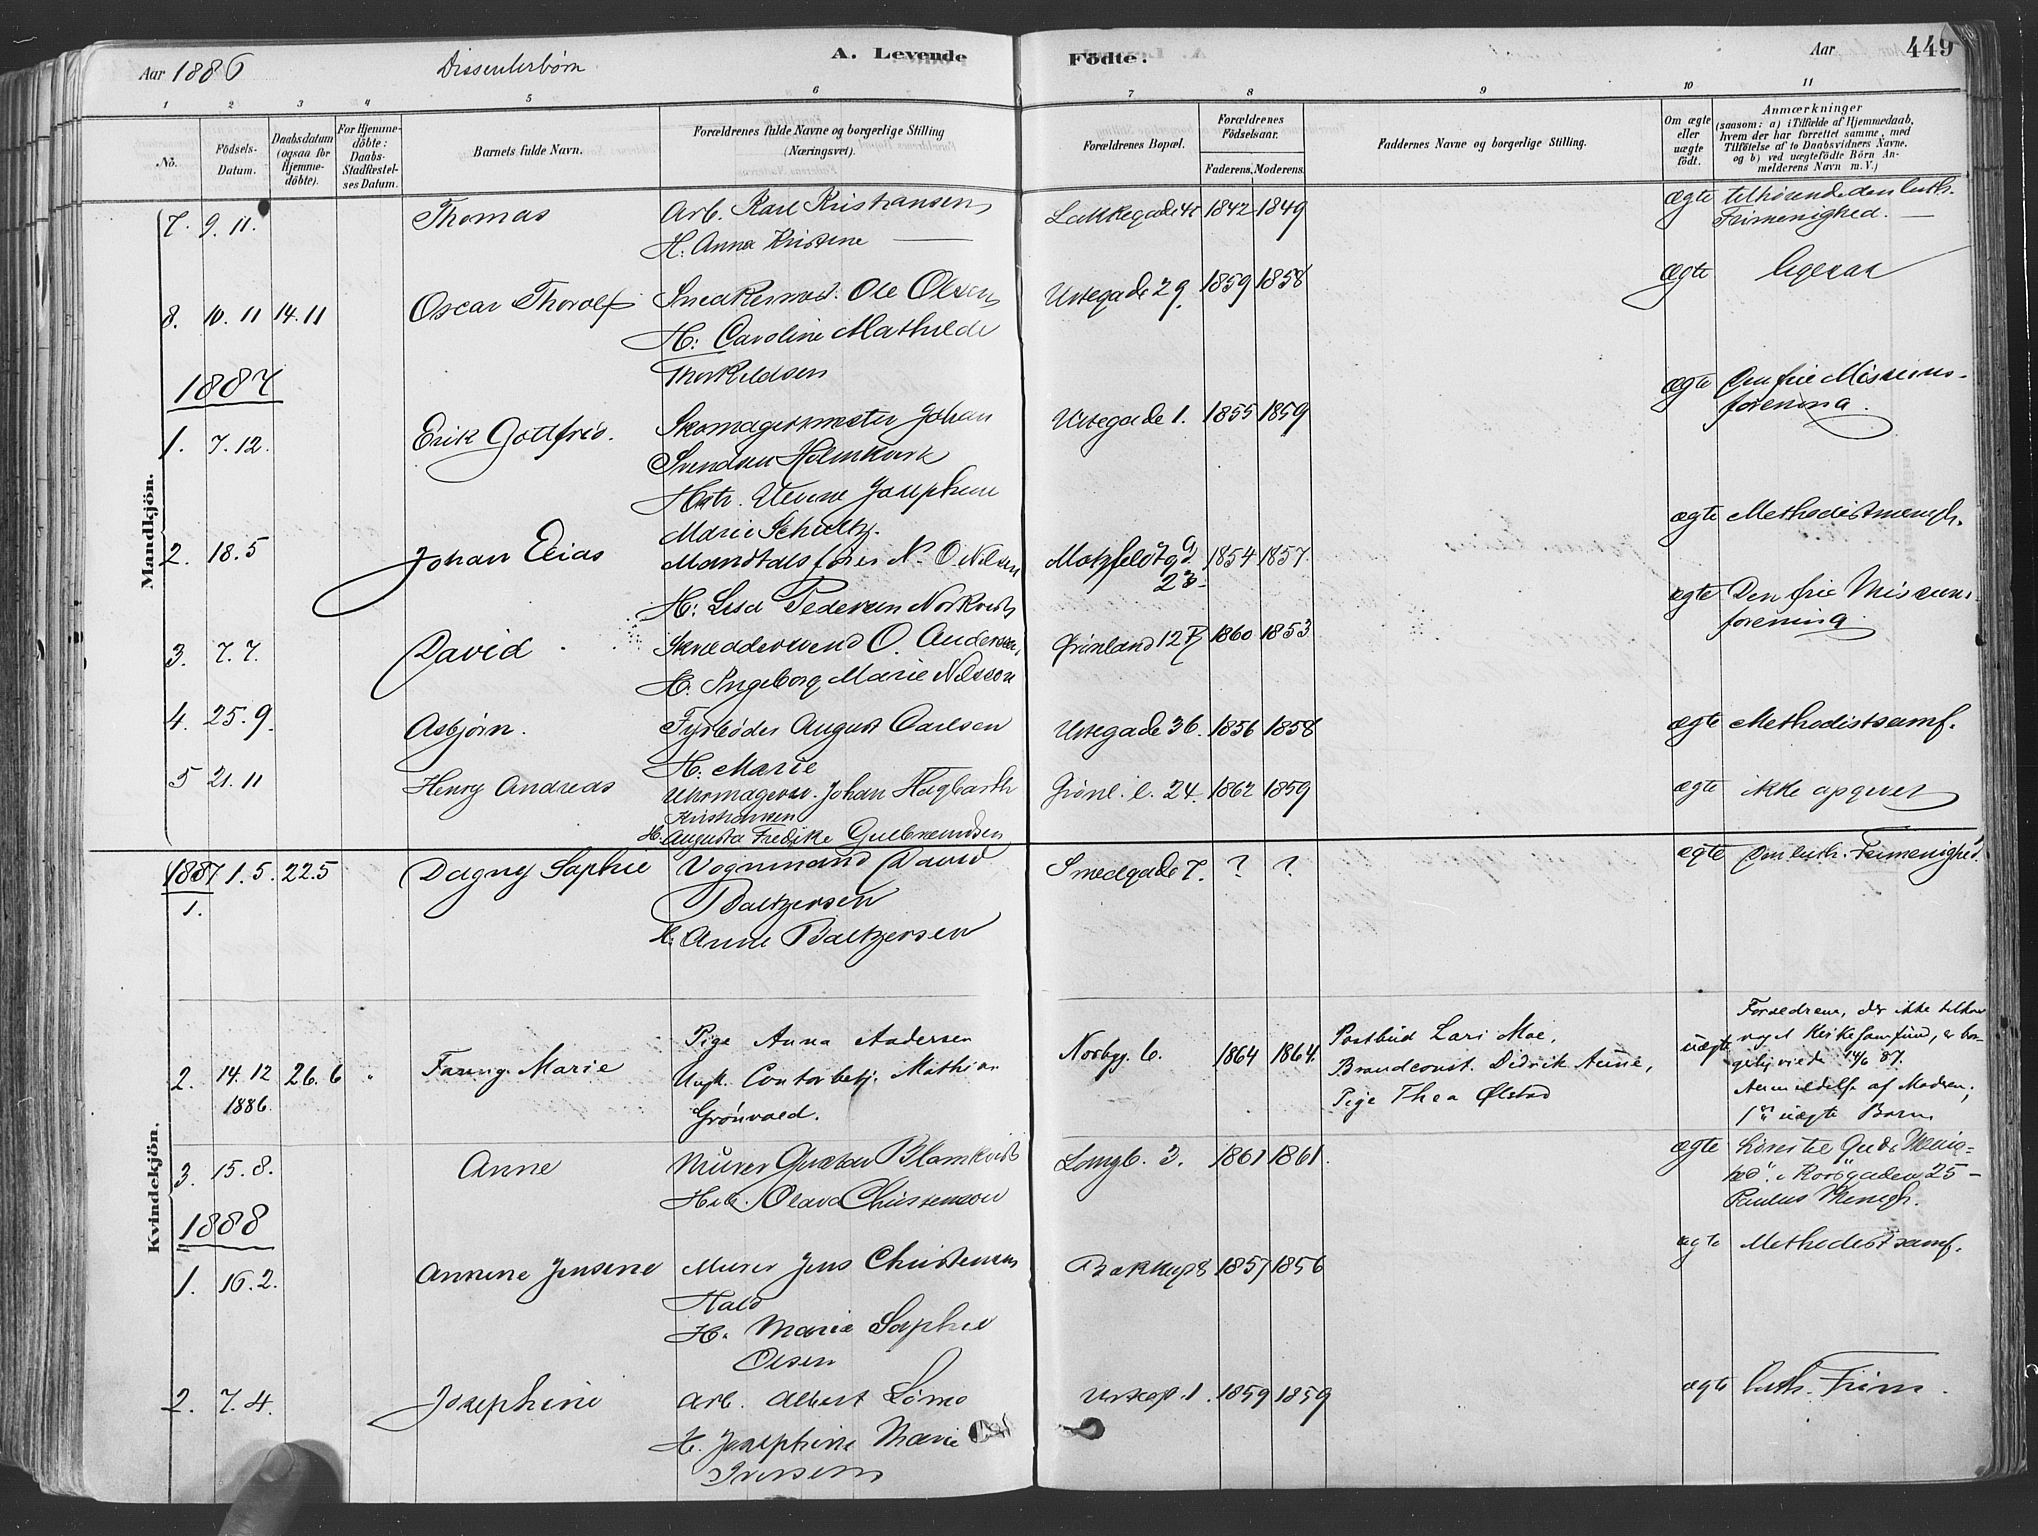 Aar 1886 Dissenterbørn A. Levende Födte. Aar 449
1 2 3 4 5 6 7 8 9 10 11
No. Födsels-Datum. Daabsdatum (ogsaa for Hjemmedöbte). For Hjemmedöbte: Daabs-Stadfæstelses Datum. Barnets fulde Navn. Forældrenes fulde Navne og borgerlige Stilling (Næringsvei). Forældrenes Bopæl. Forældrenes Födselsaar. Faderens. Moderens. Faddernes Navne og borgerlige Stilling. Om ægte eller uægte födt. Anmærkninger (saasom: a) i Tilfælde af Hjemmedaab, hvem der har forrettet samme, med Tilföielse af to Daabsvidners Navne, og b) ved uægtefödte Börn Anmelderens Navn m. V.)
Mandkjön.
7. 9. 11. Thomas Arb. Karl Kristiansen Lakkegade 41 1842 1849 ægte tilhørende den luth.
H. Anna Kristine — Frimenighed. —
8. 10. 11 14. 11 Oscar Thorolf Snedkermest. Ole Olsen Urtegade 29. 1859 1858 ægte ligesaa
H: Caroline Mathilde
Thorkildsen
1887
1. 7. 12. Erik Gottfried. Skomagermester Johan Urtegade 1. 1855 1859 ægte Den frie Missions-
Svendsen Holmkvist forening.
Hstr. Josephine
Marie Schultz.
2. 18. 5 Johan Elias Mandtalsfører N. O. Nilsen Motzfeldtsgd 23. 1854 1857. ægte Methodistmenigh.
H: Lisa Pedersen Norkvist
3. 7. 7. David Skræddersvend O. Andersen, Grønland 12 1860 1853 ægte Den frie Missions-
H. Ingeborg Marie Nilsson forening.
4. 25. 9. Asbjørn. Fyrbøder August Carlsen Urtegade 36. 1856 1858 ægte Methodistsamf.
H. Marie
5 21. 11 Henry Andreas Uhrmagersv. Johan Hagbarth Grønl. l. 24. 1862 1859 ægte ikke opgivet
Kristiansen
H. Augusta Fredrike Gulbrandsen
Kvindekjön.
1887 1. 1. 5. 22.5 Dagny Sophie Vognmand David Smedgade 7. ? ? ægte Den luth. Frimenighed.
Baltzersen
H. Anne Baltzersen
2. 14. 12 1886. 26. 6 Fanny Marie Pige Anna Andersen Norbyg. 6. 1864 1864. Postbud Lars Moe, uægte Forældrene, der ikke tilhør
Ungk. Contorbetj. Mathias Brandconst. Didrik Aune, noget Kirkesamfund, er bor-
Grönvold. Pige Thea Ølstad gerlig viede 14/6 87.
Anmeldelse af Modren;
1ste uægte Barn.
3. 15. 8. Anne Murer Gustav Blomkvist Langb. 3. 1861 1861. ægte hører til Guds Menig-
H. Olava Christensen hed". i Korsgaden 25 -
Paulus Menigh.
1888
1. 16. 2. Annine Jensine Murer Jens Christensen 1857 1856 ægte Methodistsamf.
Hald
H. Marie Sophie
Olsen
2. 7. 4. Josephine Arb. Albert Lømo Urtegt. 1. 1859 1859 ægte luth. Frim.
H. Josephine Marie
Iversen